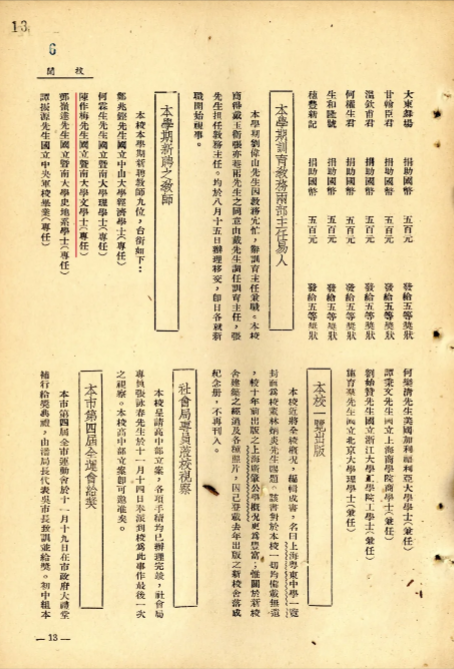 13
6
校聞
大東舞場 捐助國幣 五百元 發給五等獎狀
甘翰臣君 捐助國幣 五百元 發給五等獎狀
溫欽甫君 捐助國幣 五百元 發給五等獎狀
何權生君 捐助國幣 五百元 發給五等獎狀
生和隆號 捐助國幣 五百元 發給五等獎狀
穗豐新記 捐助國幣 五百元 發給五等獎狀
本學期訓育教務兩部主任易人
本學期劉偉山先生因教務尤忙，辭訓育主任兼職。本校
商得戴玉衡張亦菴兩先生之同意由戴先生調任訓育主任，張
先生担任教務主任。均於八月十五日辦理移交，卽日各就新
職開始視事。
本學期新聘之教師
本校本學期新聘教師九位，台銜如下：
鄭兆銓先生國立中山大學經濟學士（專任）
何霖生先生國立暨南大學理學士（專任）
陳作梅先生國立暨南大學文學士（專任）
鄧嶺達先生國立暨南大學史地系學士（專任）
譚振源先生國立中央軍校畢業（專任）
何樂濟先生美國加利福利亞大學學士（兼任）
譚秉文先生國立上海商學院商學士（兼任）
劉始贊先生國立浙江大學工學院工學士（兼任）
施育羣先生國立北京大學理學士（兼任）
本校一覽出版
本校近將全校概況，編輯成書，名曰上海粵東中學一覽
封面爲校董林炳炎先生題簽。該書對於本校一切均備載無遺
，較十年前出版之上海廣肇公學槪况更爲豐富；惟關於新校
舍建築之經過及各種照片，因已登載去年出版之新校舍落成
紀念册，不再刊入。
社會局專員蒞校視察
本校呈請高中部立案，各項手續均已辦理完竣，社會局
專員張詠春先生於十一月十四日奉派到校爲此事作最後一次
之視察。本校高中部立案卽可邀准矣。
本市第四屆全運會給獎
本市第四屆全市運動會於十一月十九日在市政府大禮堂
補行給獎典禮，由潘局長代表吳市長致訓並給獎。初中組本
— 13 —